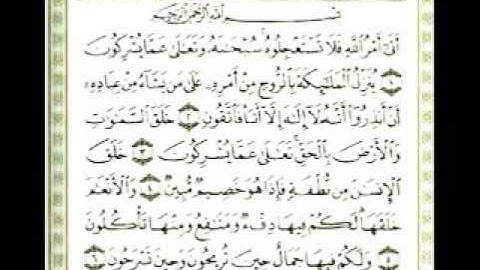 بِسْمِ اللَّهِ الرَّحْمَٰنِ الرَّحِيمِ
أَتَىٰ أَمْرُ اللَّهِ فَلَا تَسْتَعْجِلُوهُ سُبْحَانَهُ وَتَعَالَىٰ عَمَّا يُشْرِكُونَ
١ يُنَزِّلُ الْمَلَائِكَةَ بِالرُّوحِ مِنْ أَمْرِهِ عَلَىٰ مَن يَشَاءُ مِنْ عِبَادِهِ
أَنْ أَنذِرُوا أَنَّهُ لَا إِلَٰهَ إِلَّا أَنَا فَاتَّقُونِ ٢ خَلَقَ السَّمَاوَاتِ
وَالْأَرْضَ بِالْحَقِّ تَعَالَىٰ عَمَّا يُشْرِكُونَ ٣ خَلَقَ
الْإِنسَانَ مِن نُّطْفَةٍ فَإِذَا هُوَ خَصِيمٌ مُّبِينٌ ٤ وَالْأَنْعَامَ
خَلَقَهَا لَكُمْ فِيهَا دِفْءٌ وَمَنَافِعُ وَمِنْهَا تَأْكُلُونَ
٥ وَلَكُمْ فِيهَا جَمَالٌ حِينَ تُرِيحُونَ وَحِينَ تَسْرَحُونَ ٦